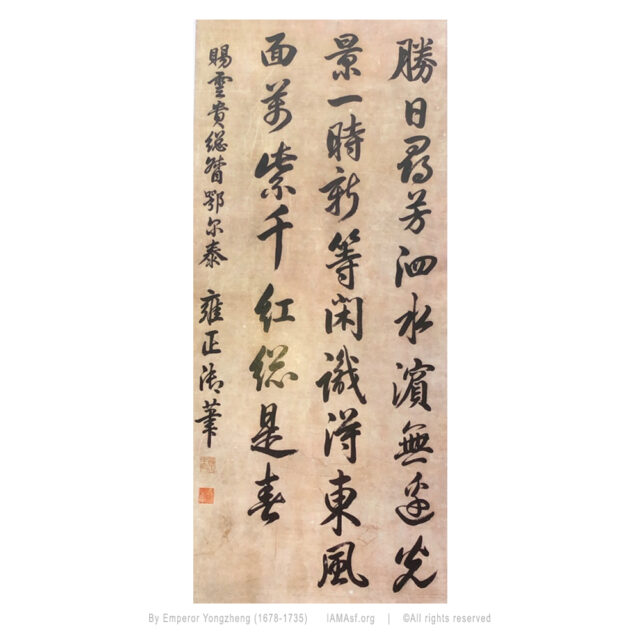 勝日尋芳泗水濱無邊光
景一時新等閑識得東風
面萬紫千紅總是春
賜雲貴總督鄂尔泰 雍正御筆
By Emperor Yongzheng (1678-1735) IAMAsf.org | ©All rights reserved